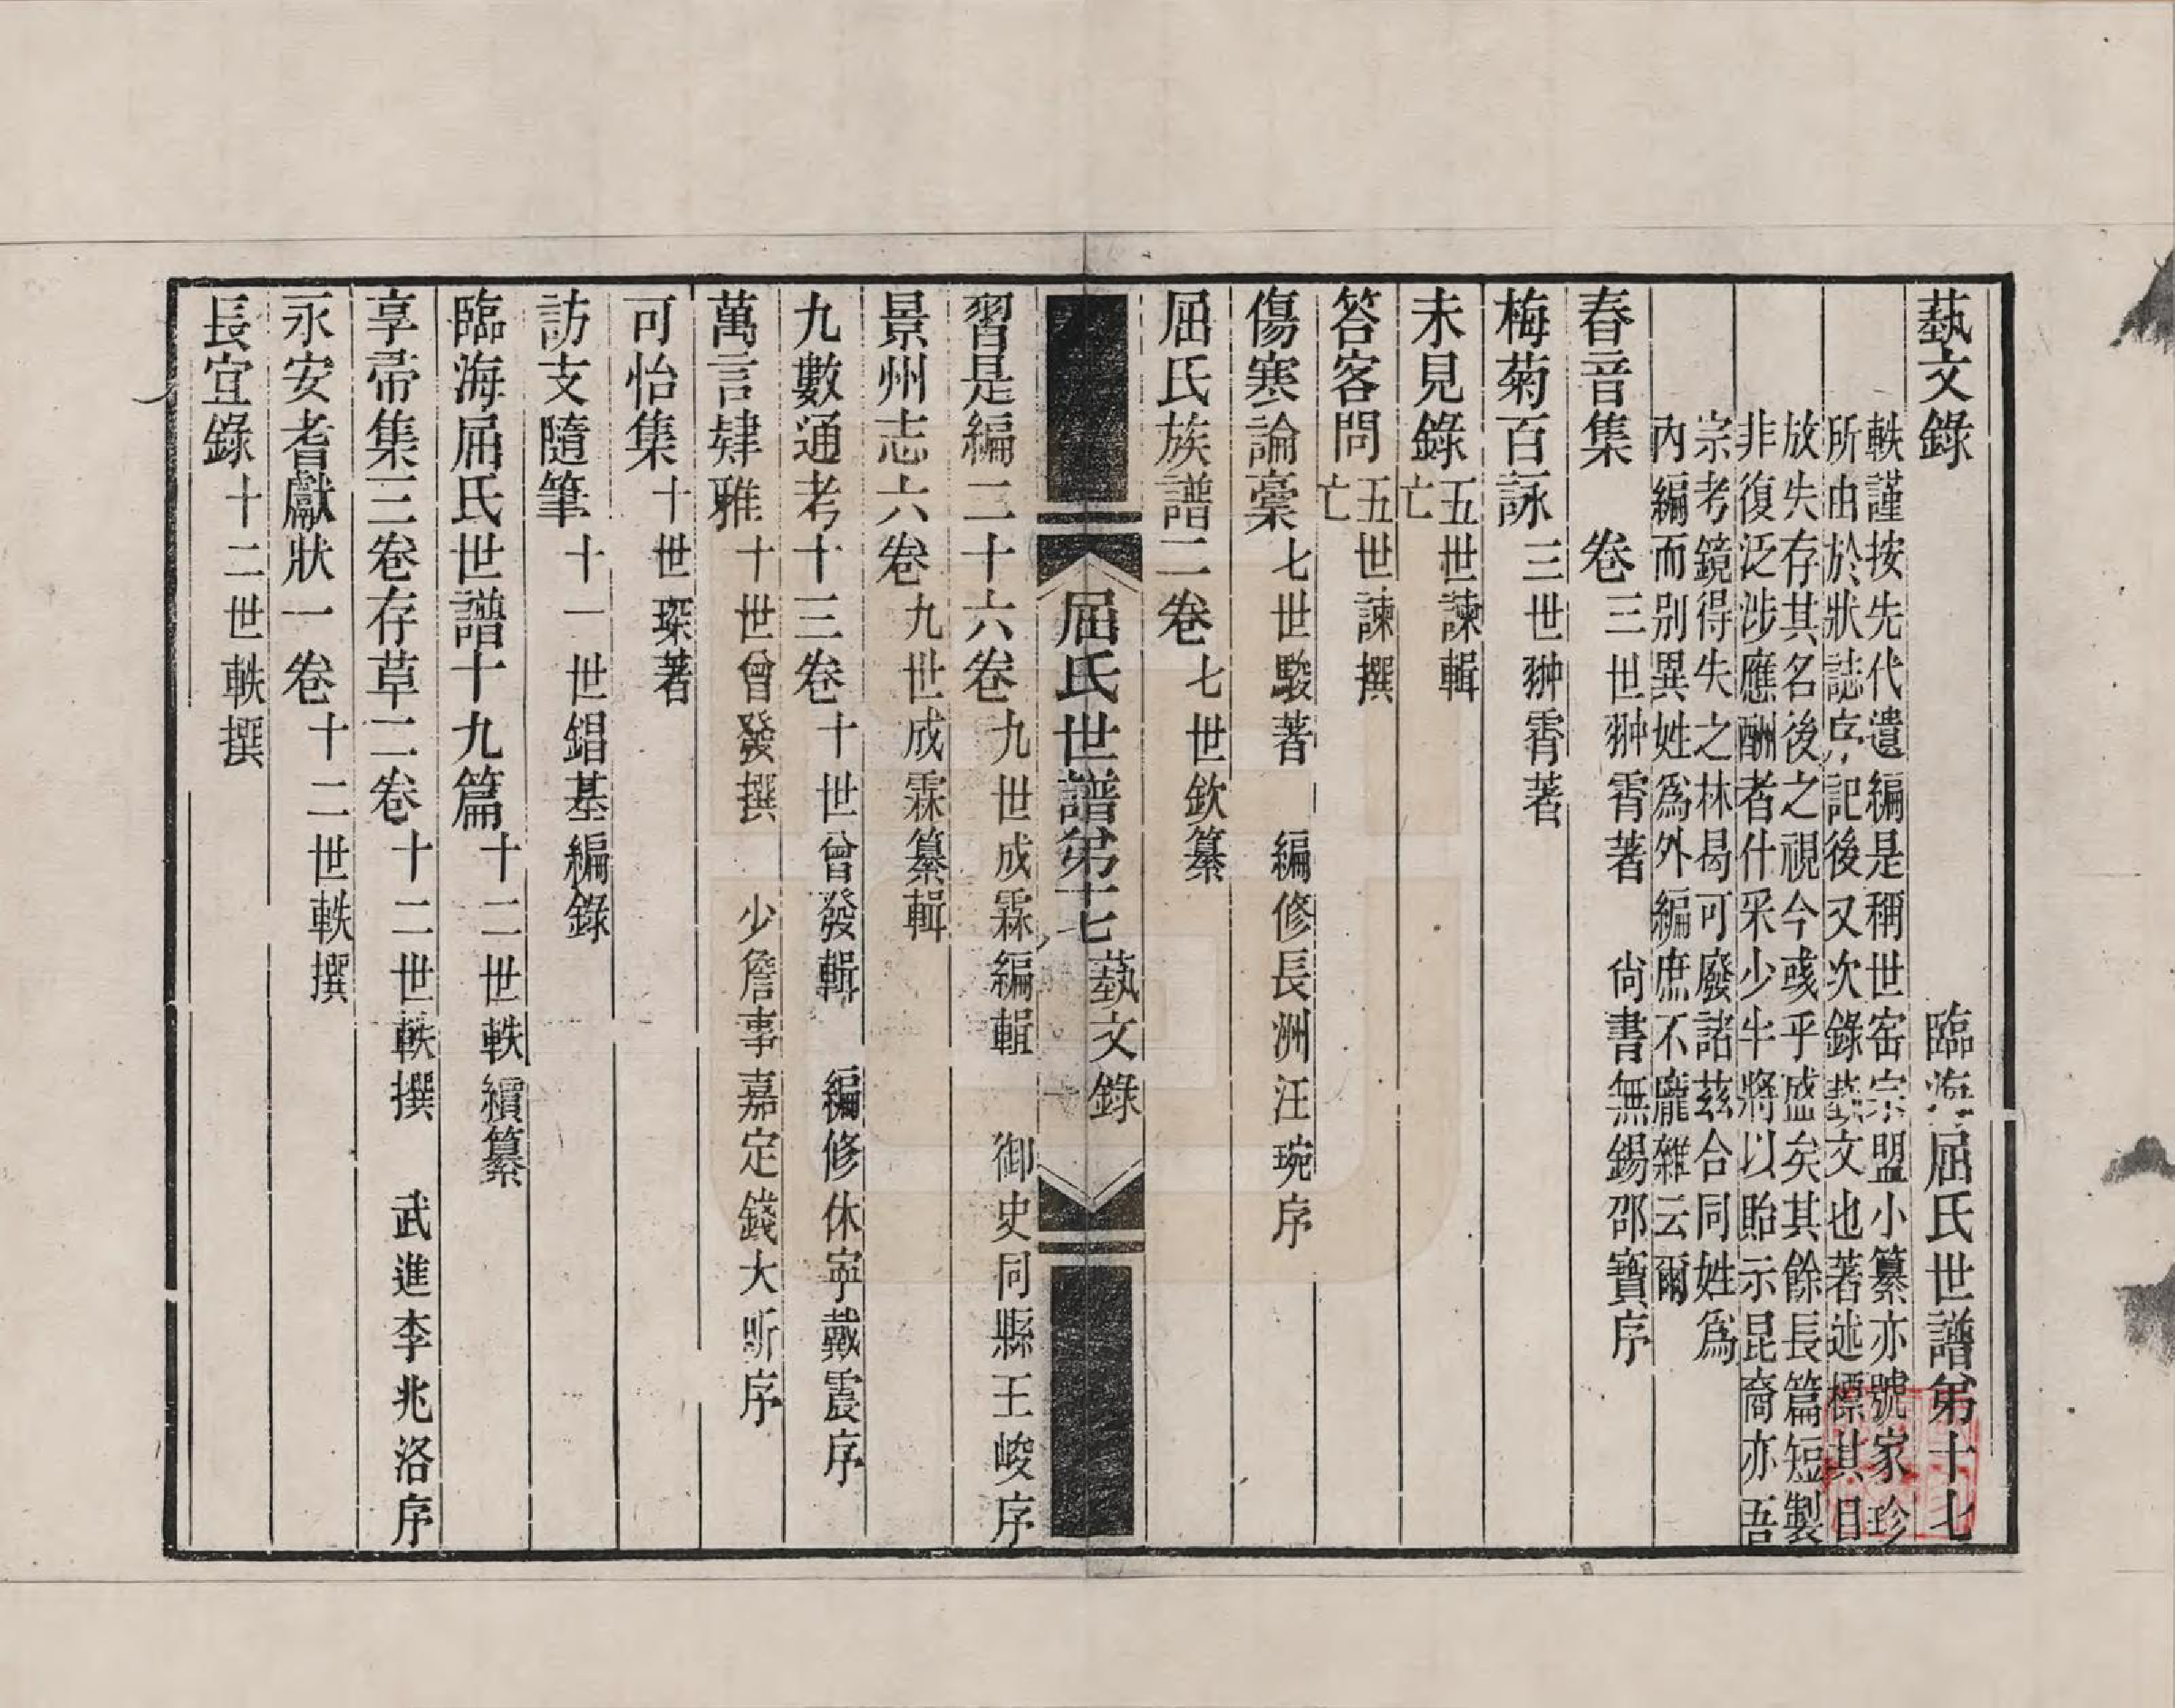 藝文錄　臨海屈氏世譜弟十七
軼謹按先代遺編是稱世宻宗盟小纂亦號家珍
所由於狀誌序記後又次錄藝文也著述標其目
放失存其名後之視今彧乎盛矣其餘長篇短製
非復泛涉應酬者什采少半將以貽示昆裔亦吾
宗考鏡得失之林曷可廢諸茲合同姓爲
內編而别異姓爲外編庶不龐雜云爾
春音集　卷三世翀霄著　尙書無錫邵寶序
梅菊百詠三世翀霄著
未見錄五世諫輯
亡
答客問五世諫撰
亡
傷寒論稾七世駿著　編修長洲汪琬序
屈氏族譜二卷七世欽纂
屈氏世譜弟十七　藝文錄　一
習是編二十六卷九世成霖編輯　御史同縣王峻序
景州志六卷九世成霖纂輯
九數通考十三卷十世曾發輯　編修休寧戴震序
萬言肄雅十世曾發撰　少詹事嘉定錢大昕序
可怡集十世琛著
訪支隨筆十一世錩基編錄
臨海屈氏世譜十九篇十二世軼續纂
享帚集三卷存草二卷十二世軼撰　武進李兆洛序
永安耆獻狀一卷十二世軼撰
長宜錄十二世軼撰